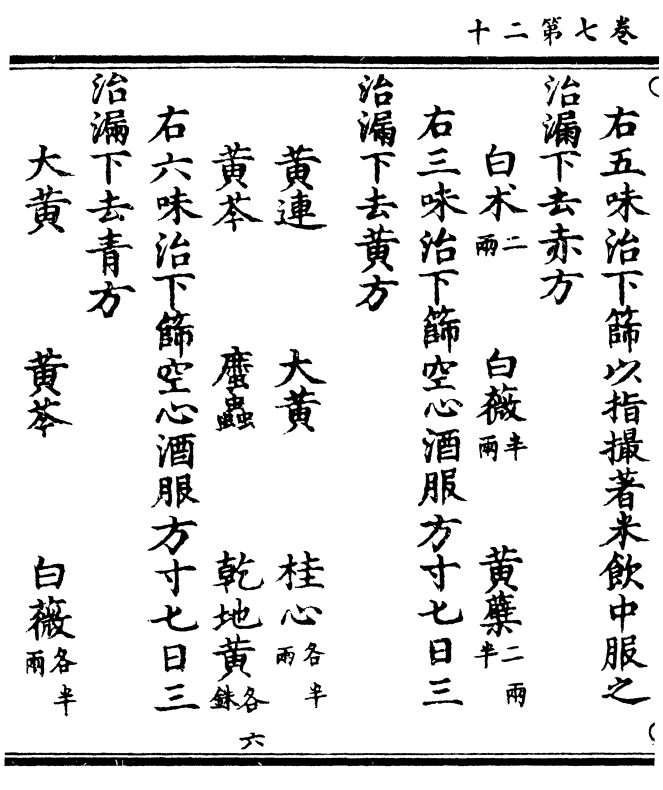 卷七第二十
右五味治下篩以指撮著米飲中服之
治漏下去赤方
白朮二兩 白薇半兩 黃蘗二兩半
右三味治下篩空心酒服方寸匕日三
治漏下去黃方
黃連 大黃 桂心各半兩
黃芩 䗪蟲 乾地黃各六銖
右六味治下篩空心酒服方寸匕日三
治漏下去青方
大黃 黃芩 白薇各半兩